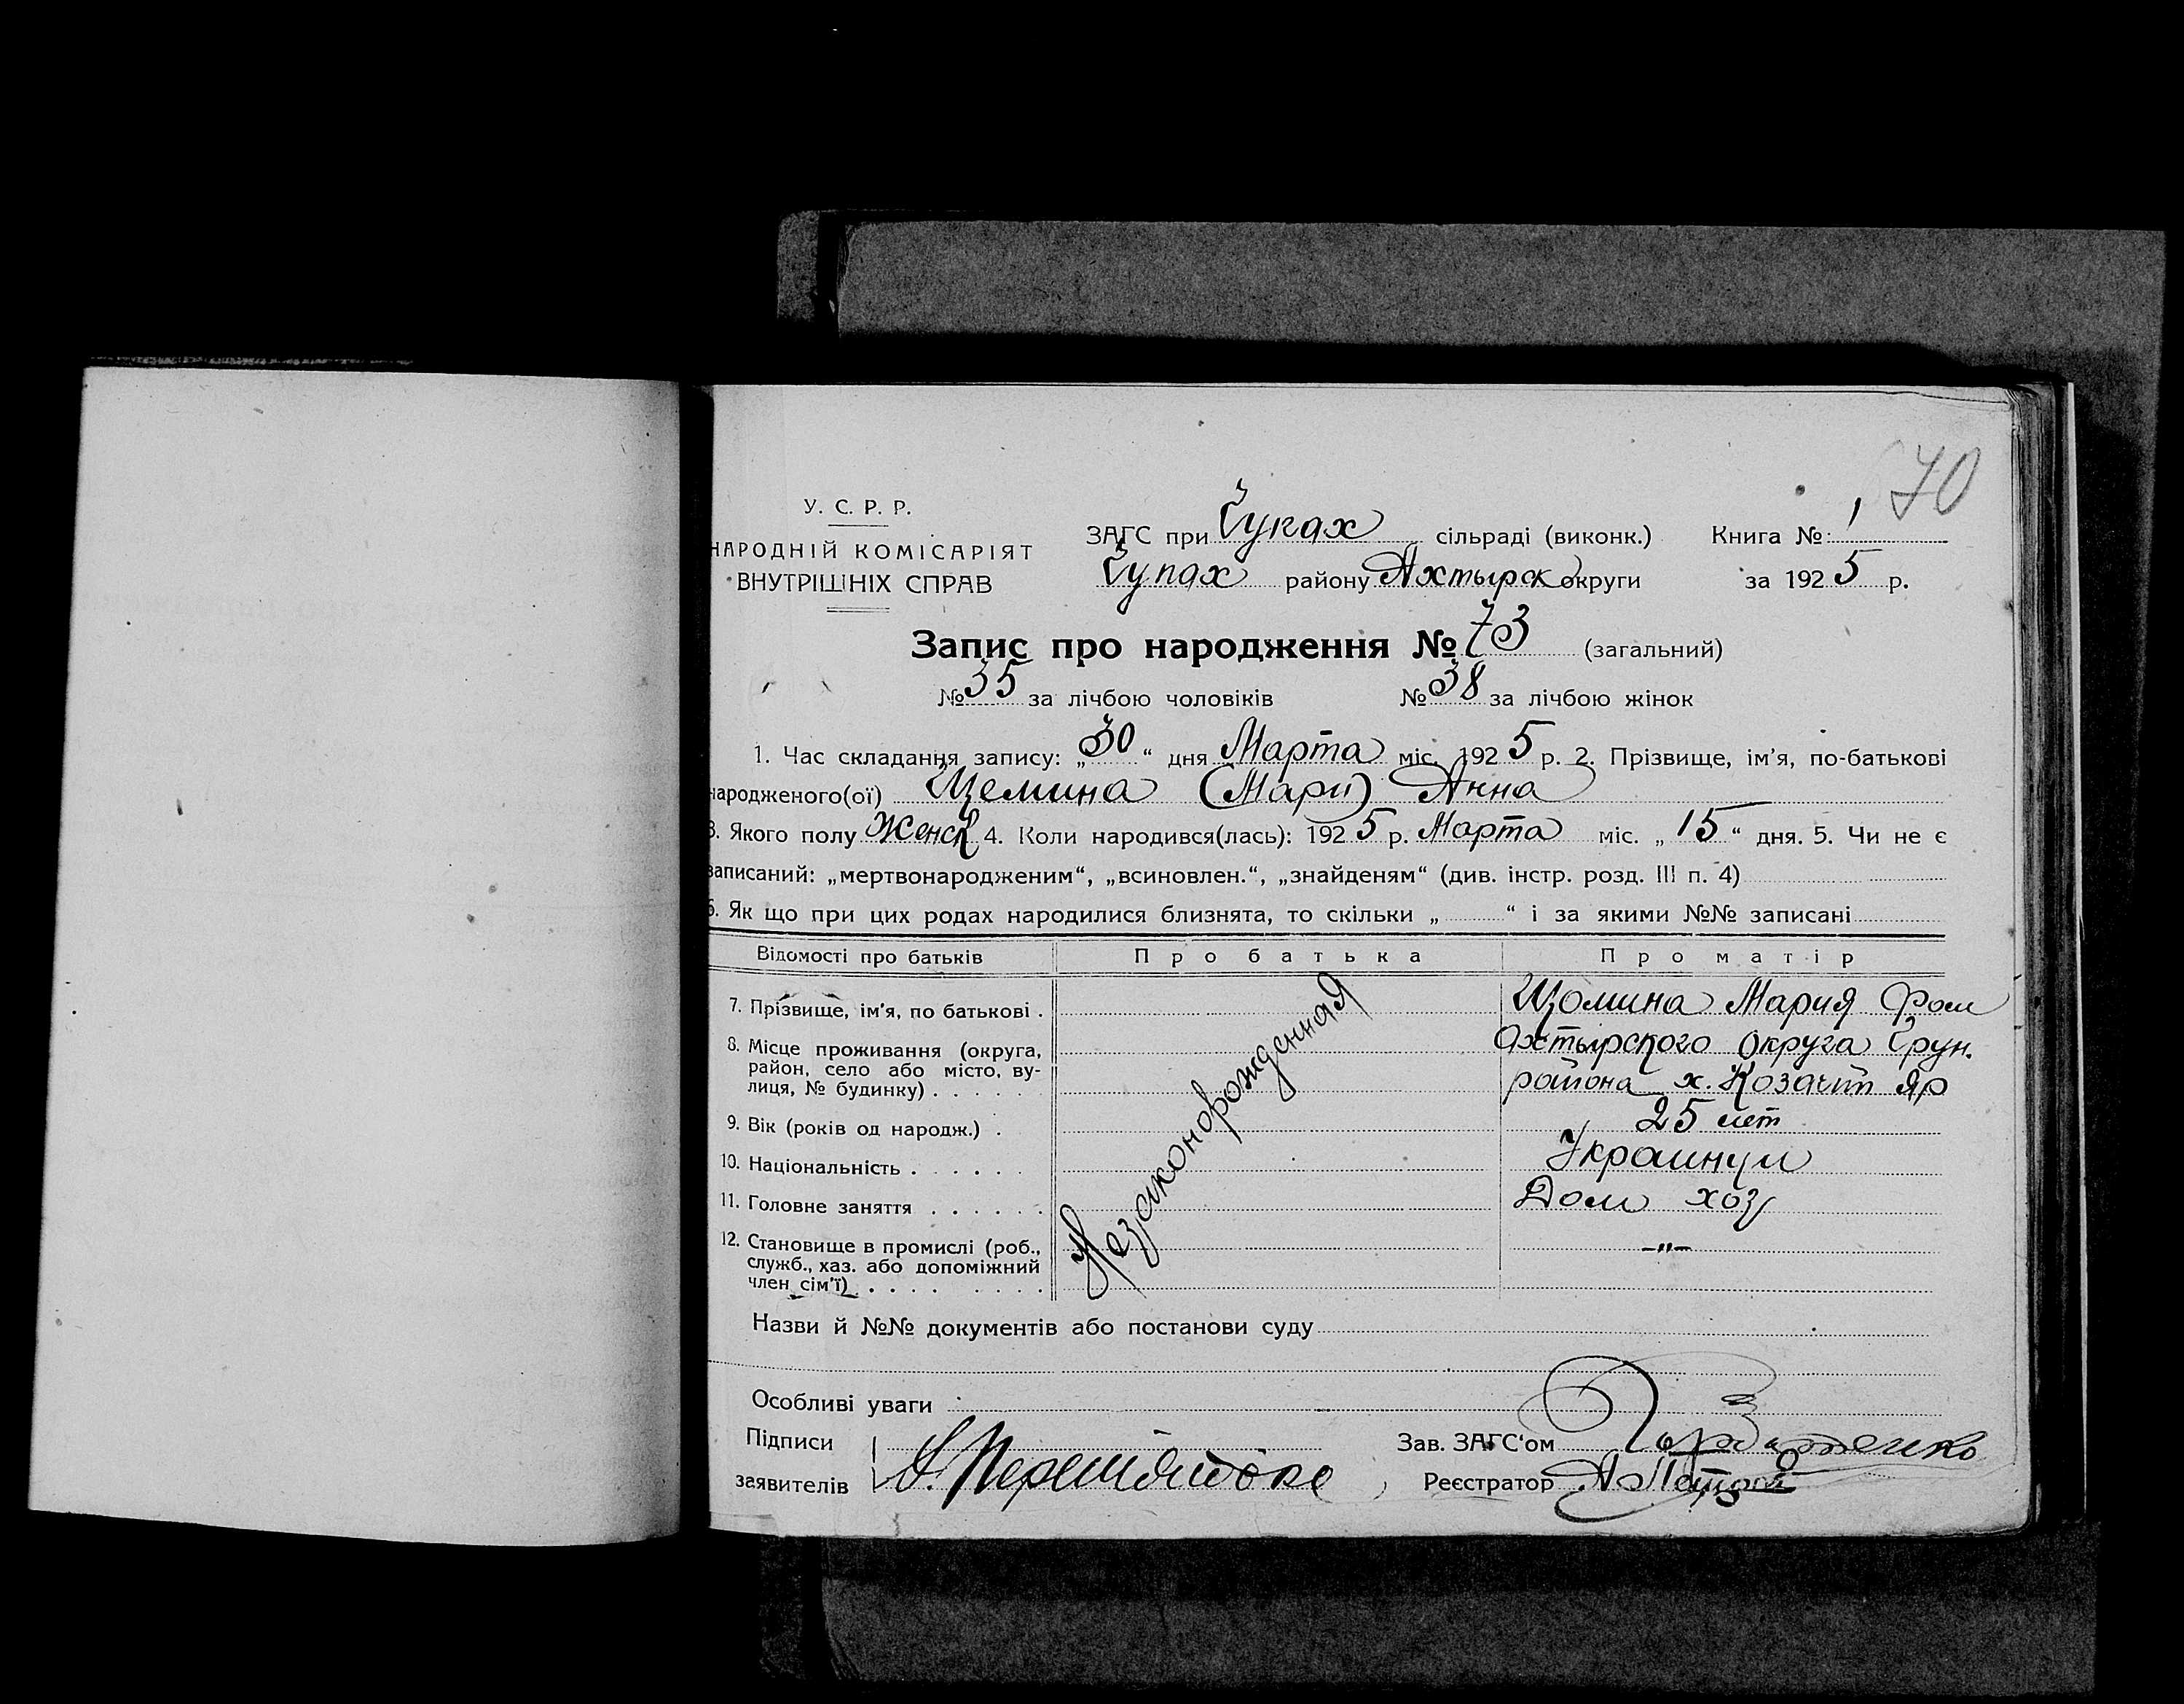 70
У. С. Р. Р.
НАРОДНІЙ КОМІСАРІЯТ
ВНУТРІШНІХ СПРАВ
ЗАГС при Чупах сільраді (виконк.) Книга №: 1
Чупах району Ахтырск округи за 1925 р.
Запис про народження № 73 (загальний)
№ 35 за лічбою чоловіків № 38 за лічбою жінок
1. Час складання запису: „30“ дня Марта міс. 1925 р. 2. Прізвище, ім'я, по-батькові
народженого(ої) Щемина (Марії) Анна
3. Якого полу Женск 4. Коли народився(лась): 1925 р. Марта міс. „15“ дня. 5. Чи не є
записаний: „мертвонародженим“, „всиновлен.“, „знайденям“ (див. інстр. розд. III п. 4)
6. Як що при цих родах народилися близнята, то скільки „ “ і за якими №№ записані
Відомості про батьків Про батька Про матір
7. Прізвище, ім'я, по батькові . Щомина Мария Ром
8. Місце проживання (округа, Ахтырского округа Грун.
район, село або місто, ву-
лиця, № будинку) . . . . . . района х. Козачий Яр
9. Вік (років од народж.) . 25 лет
10. Національність . . . . . .
11. Головне заняття . . . . . . Дом хоз
12. Становище в промислі (роб., -"-
служб., хаз. або допоміжний
член сім'ї) . . . . . . . .
Незаконорожденная
Назви й №№ документів або постанови суду
Особливі уваги
Підписи Зав. ЗАГС'ом
заявителів Реєстратор